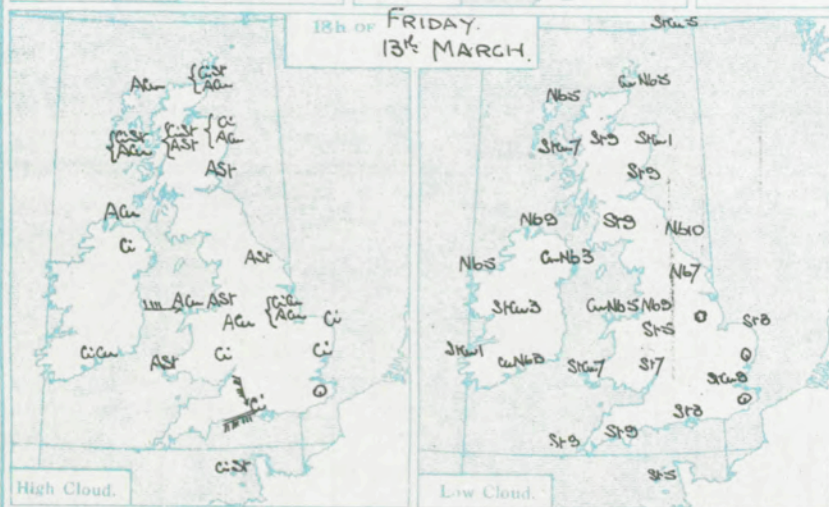 18h OF FRIDAY.
13th MARCH.
ACu
CiSt
ACu
CiSt
ACu
CiSt
ASt
Ci
ACu
ASt
ACu
Ci
ASt
ACu ASt
CiCu
ACu
ACu
Ci
Ci
Ci
CiCu
ASt
Ci
CiSt
High Cloud.
StCu5
CuNb5
Nb5
St9
StCu1
StCu7
St9
Nb9
St9
Nb10
Nb5
CuNb3
Nb7
StCu3
CuNb5
Nb9
St5
St8
StCu1
CuNb8
StCu7
St7
StCu8
St8
St9
St9
St5
Low Cloud.